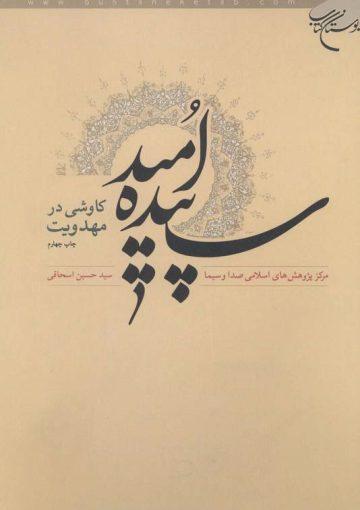 www.bustaneketab.com
بوستان کتاب
سپیده امید
کاوشی در
مهدویت
چاپ چهارم
مرکز پژوهش‌های اسلامی صدا و سیما
سید حسین اسحاقی